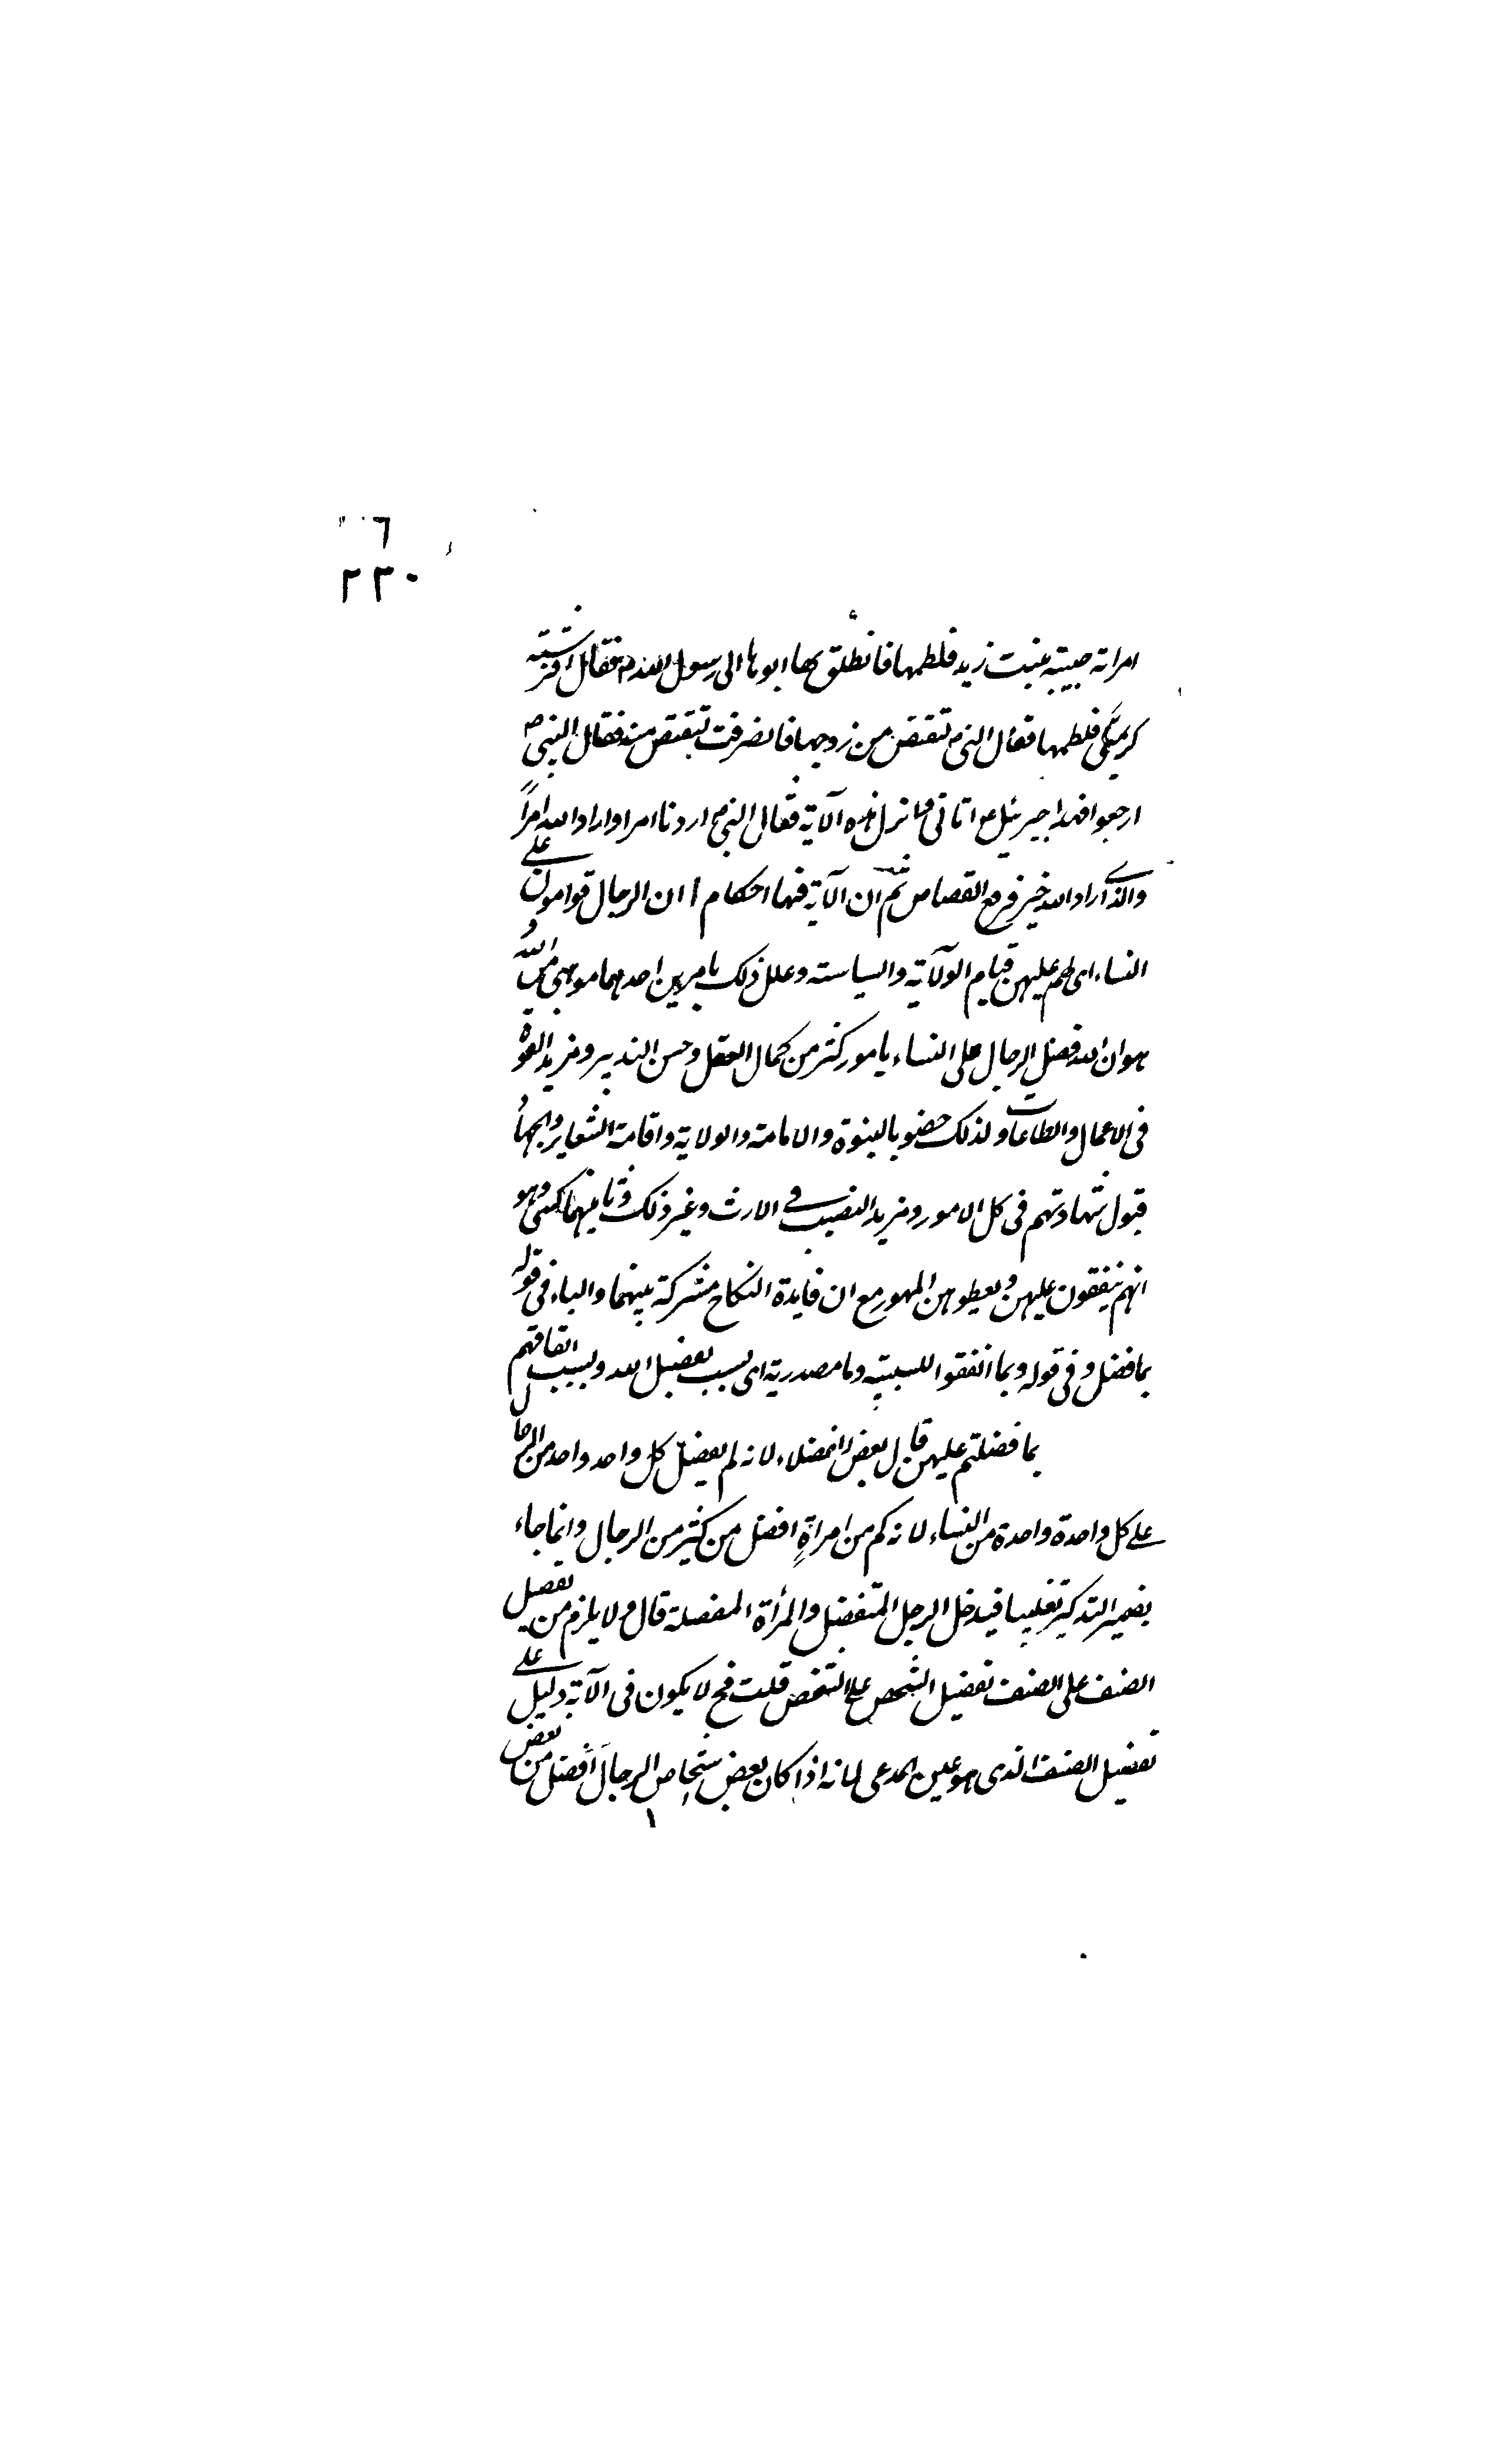 ٦
٢٣٠
امراته حبيبة بنت زيد فلطمها فانطلق بها ابوها الى رسول الله ص فقال افرشته
كريمتي فلطمها فقال النبي ص تقتص من زوجها فانصرفت لتقتص منه فقال النبي ص
ارجعوا فهذا جبرئيل ع اتاني وانزل هذه الآية فقال النبي ص اردنا امرا واراد الله امراً
والذي اراد الله خير فرفع القصاص ثم ان الآية فيها احكام ا ان الرجال قوامون على
النساء اى لهم عليهن قيام الولاية والسياسة وعلل ذلك بامرين احدهما موهبي من الله
هو ان الله فضل الرجال على النساء بامور كثيرة من كمال العقل وحسن التدبير ومزيد القوة
فى الاعمال والطاعات ولذلك خصوا بالنبوة والامامة والولاية واقامة الشعاير والجهاد
قبول شهادتهم فى كل الامور ومزيد النصيب في الارث وغير ذلك وثانيهما كسبي وهو
انهم ينفقون عليهن ويعطوهن المهور مع ان فايدة النكاح مشتركة بينهما والباء في قوله
بما فضل وفي قوله وبما انفقوا للسببية وما مصدرية اى بسبب تفضيل الله وبسبب انفاقهم
بما فضلتم عليهن قال بعض الفضلاء لانه لم يفضل كل واحد واحد من الرجال
على كل واحدة واحدة من النساء لانه كم من امراةٍ افضل من كثير من الرجال وانما جاء
بضمير التذكير تغليبا فيدخل الرجل المتفضل والمرأة المفضلة قال ولا يلزم من تفضيل
الصنف على الصنف تفضيل الشخص على الشخص قلت فح لا يكون فى الآية دليل على
تفضيل الصنف الذى هو عين المدعى لانه اذا كان بعض اشخاص الرجال افضل من بعض